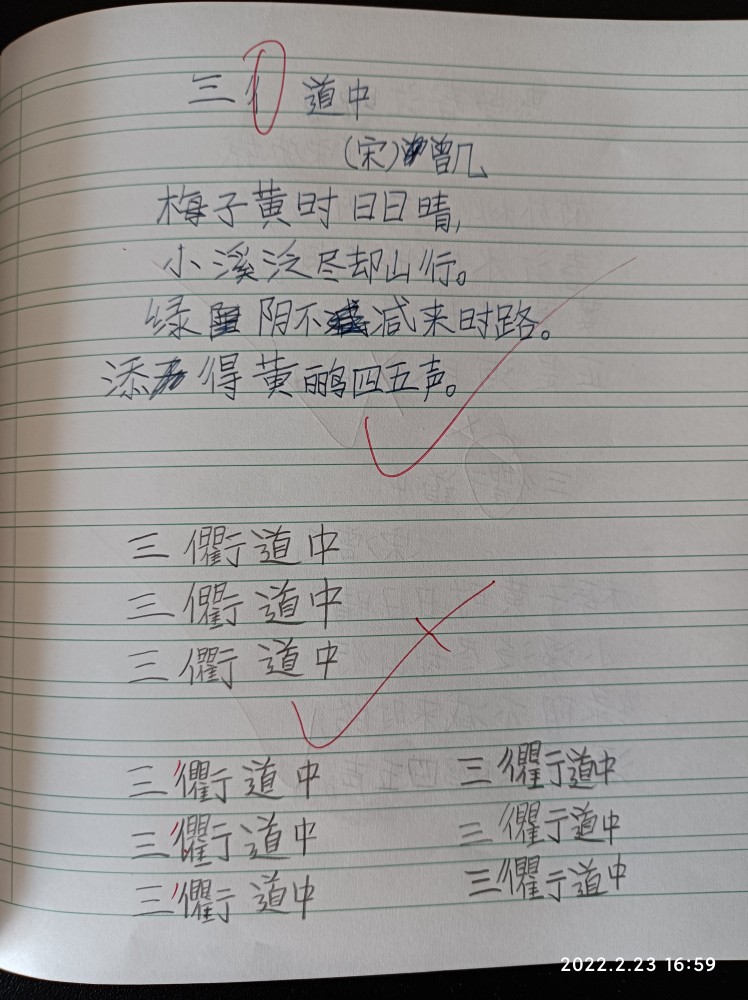 三 彳 道中
(宋)曾几
梅子黄时日日晴,
小溪泛尽却山行。
绿 阴不 减来时路。
添 得黄鹂四五声。
三衢道中
三衢道中
三衢道中
三衢道中 三衢道中
三衢道中 三衢道中
三衢道中 三衢道中
2022.2.23 16:59